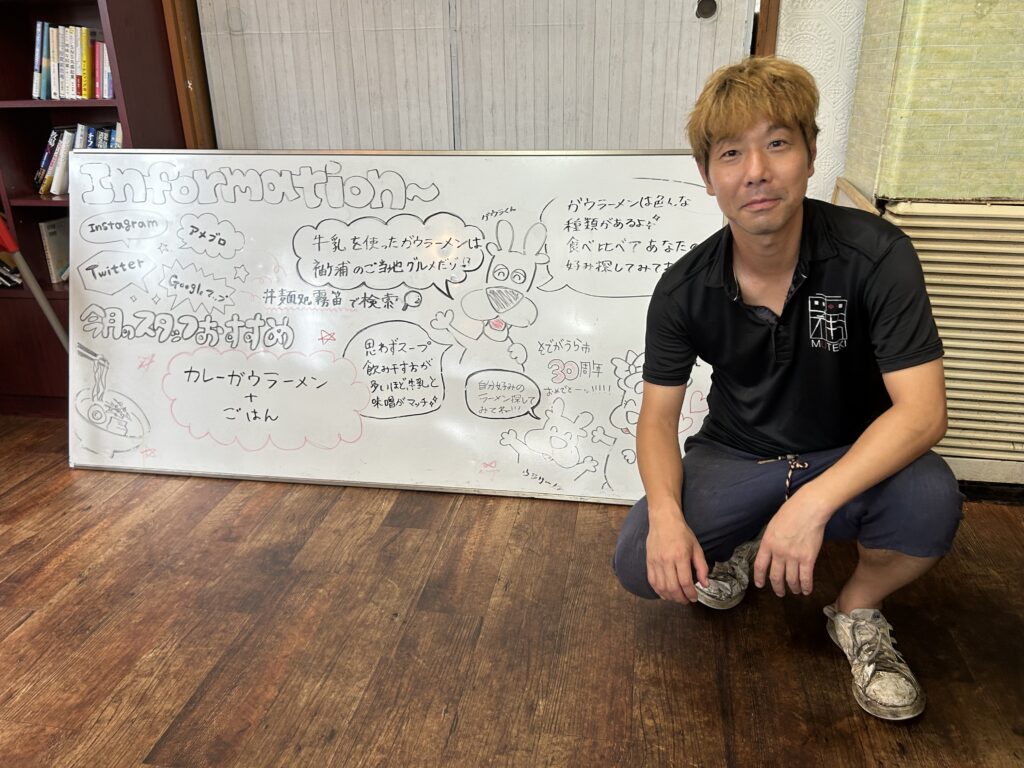 Information~
Instagram
アメブロ
Twitter
Googleマップ
#麺処霧笛で検索
今月のスタッフおすすめ
カレーガウラーメン
+
ごはん
牛乳を使ったガウラーメンは
袖浦のご当地グルメだゾ!!
ガウラくん
ガウラーメンは色んな
種類があるよ
食べ比べてあなたの
好み探してみてね
思わずスープ
飲み干す方が
多いほど牛乳と
味噌がマッチ
自分好みの
ラーメン探して
みてねー!!
そでがうら市
30周年
おめでとーっ!!!!
MUTEKI